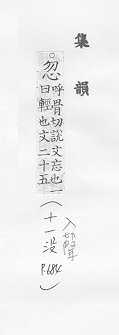 集韻
○忽呼骨切說文忘也一
曰輕也文二十五
(十一没
入聲
P.684)